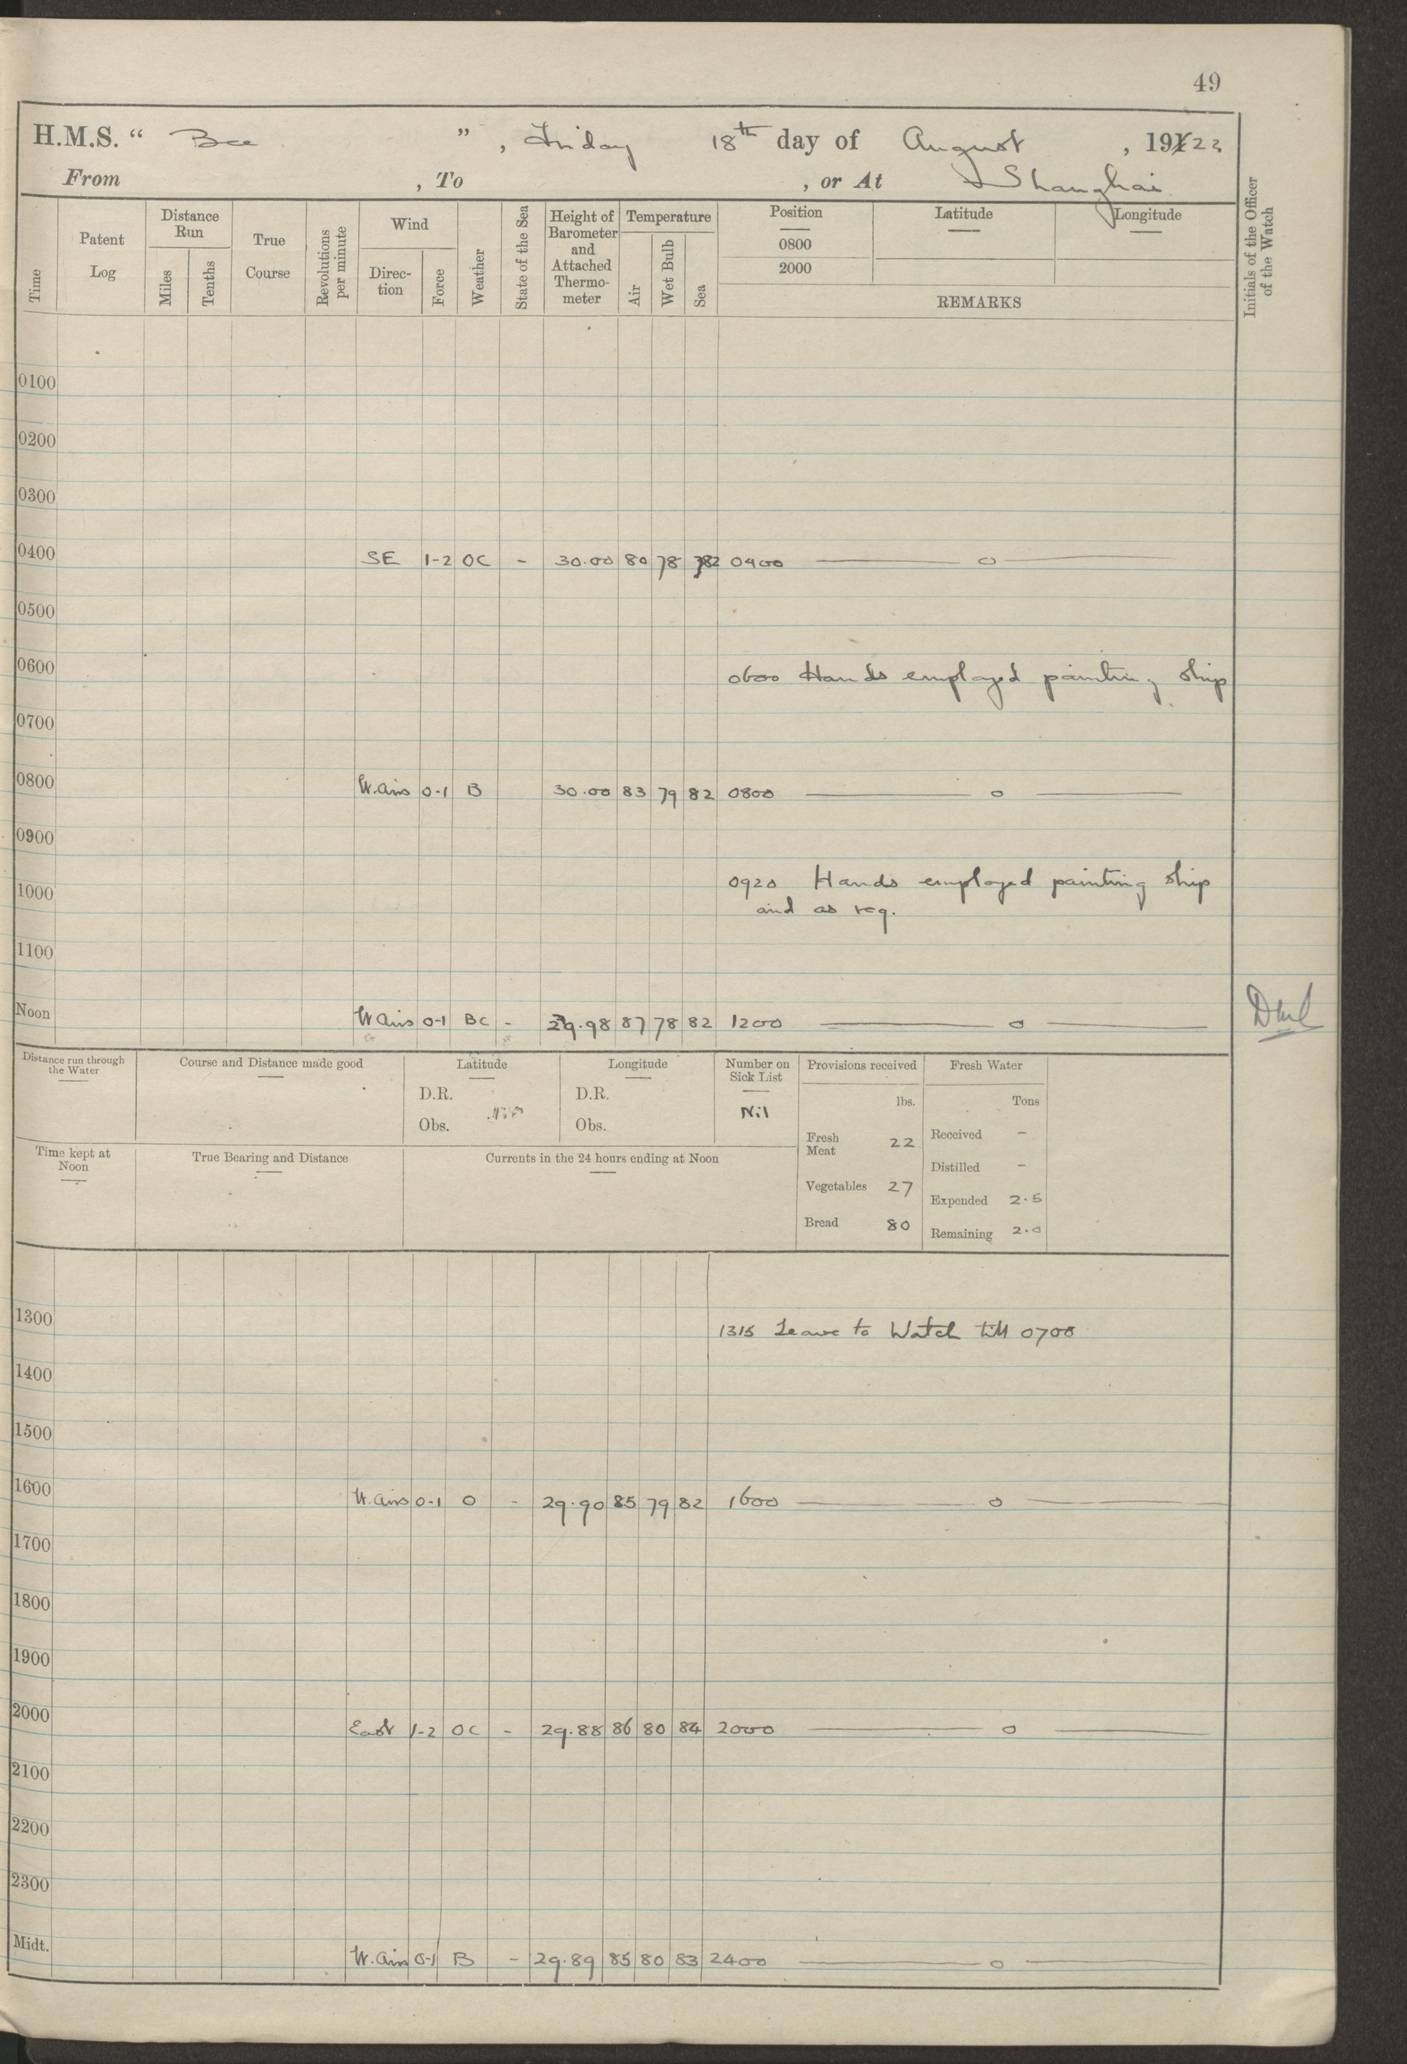 49
H.M.S. " Bee ", Friday 18th day of August, 1922
From , To , or At Shanghai
Time
Patent Log
Distance Run
Miles
Tenths
True Course
Revolutions per minute
Wind
Direc-tion
Force
Weather
State of the Sea
Height of Barometer and Attached Thermo-meter
Temperature
Air
Wet Bulb
Sea
Position
0800
2000
Latitude
Longitude
REMARKS
Initials of the Officer of the Watch
0100
0200
0300
0400 SE 1-2 OC - 30.00 80 78 82 0400 — o —
0500
0600 0600 Hands employed painting ship
0700
0800 W.airs 0-1 B 30.00 83 79 82 0800 — o —
0900
1000 0920 Hands employed painting ship
and as req.
1100
Noon W airs 0-1 BC - 29.98 87 78 82 1200 — o —
Distance run through the Water
Course and Distance made good
Latitude
D.R.
Obs.
Longitude
D.R.
Obs.
Number on Sick List
Nil
Provisions received
lbs.
Fresh Meat 22
Vegetables 27
Bread 80
Fresh Water
Tons
Received -
Distilled -
Expended 2.5
Remaining 2.0
Time kept at Noon
True Bearing and Distance
Currents in the 24 hours ending at Noon
1300 1315 Leave to Watch till 0700
1400
1500
1600 W.airs 0-1 O - 29.90 85 79 82 1600 — o —
1700
1800
1900
2000 East 1-2 OC - 29.88 86 80 84 2000 — o —
2100
2200
2300
Midt. W.airs 0-1 B - 29.89 85 80 83 2400 — o —